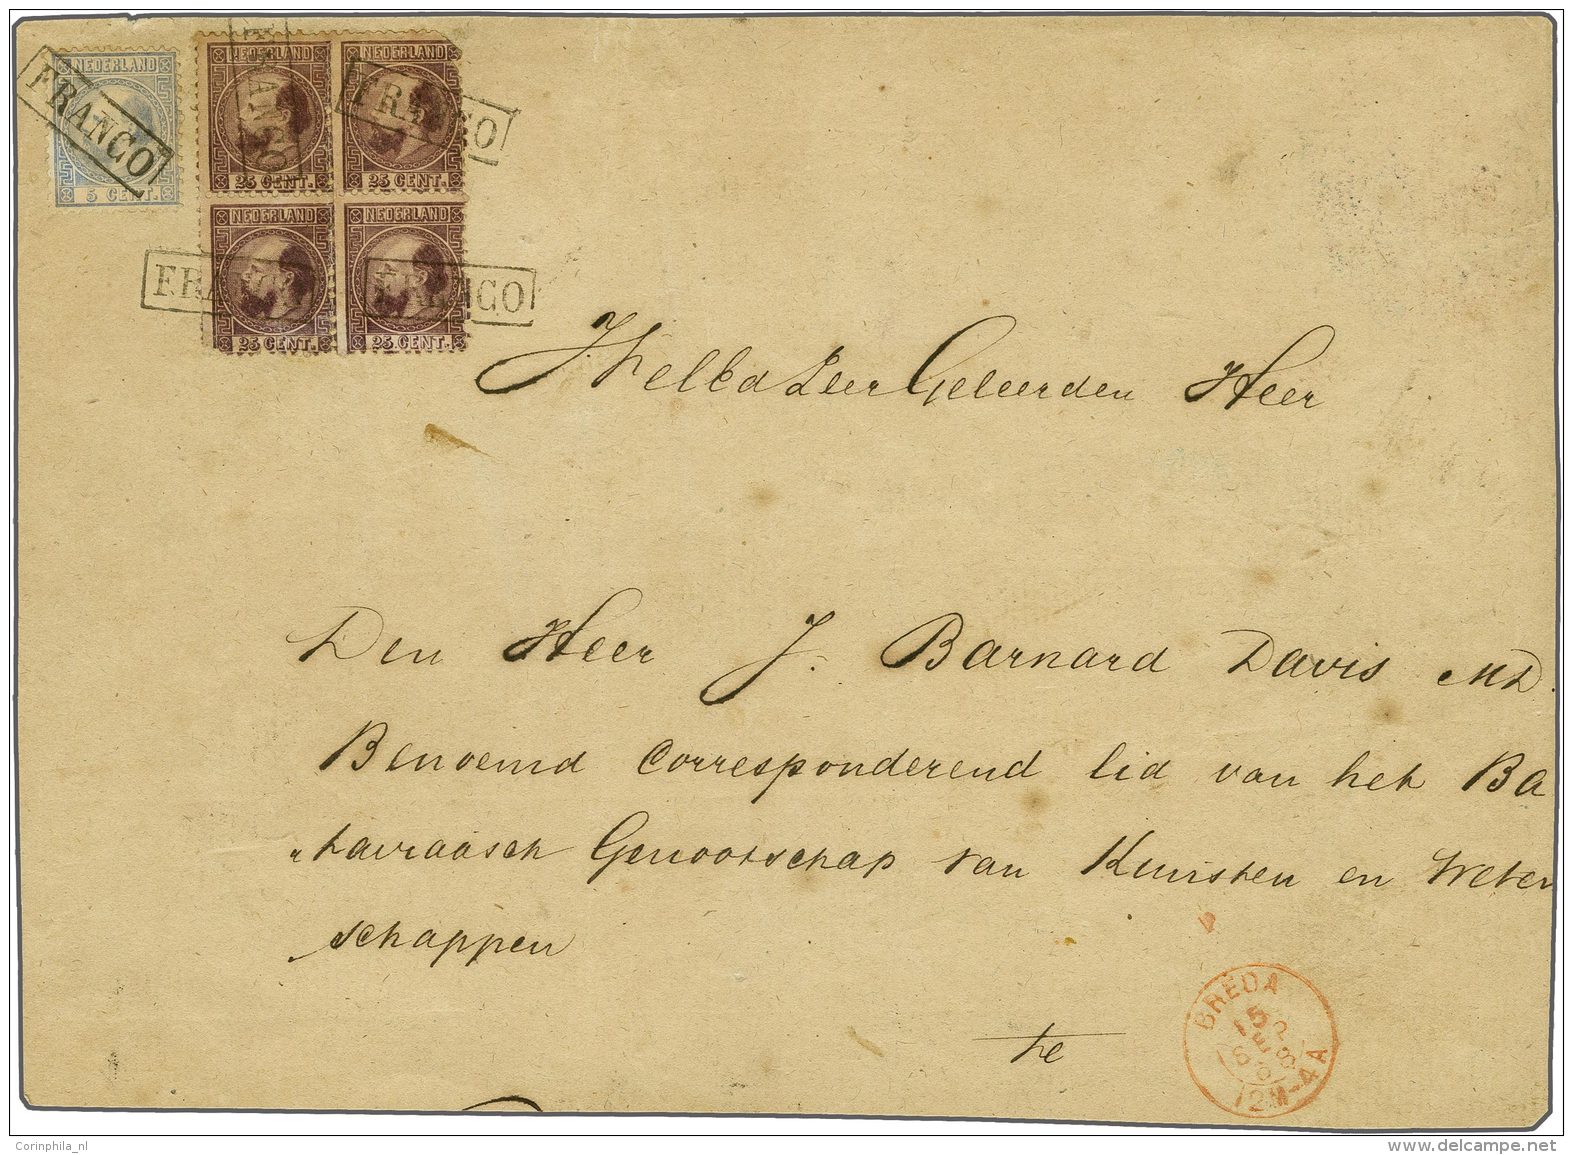 NEDERLAND
5 CENT.
FRANCO
NEDERLAND NEDERLAND
25 CENT. 25 CENT.
FRANCO FRANCO
NEDERLAND NEDERLAND
25 CENT. 25 CENT.
FRANCO FRANCO
Zeer Geleerden Heer
Den Heer J. Barnard Davis MD.
Benoemd Corresponderend lid van het Ba
"taviaasch Genootschap van Kunsten en Weten
schappen
te
BREDA
15
SEP
68
12M-4A
Corinphila_nl
www.delcampe.net